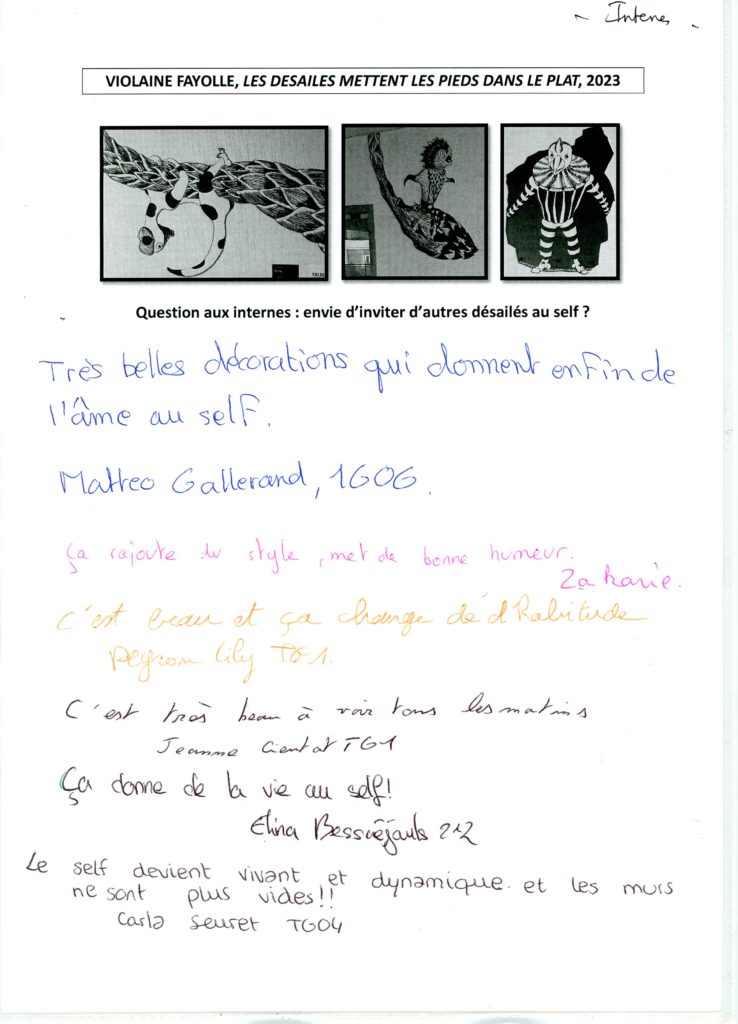 - Internes -
VIOLAINE FAYOLLE, LES DESAILES METTENT LES PIEDS DANS LE PLAT, 2023
Question aux internes : envie d'inviter d'autres désailés au self ?
Très belles décorations qui donnent enfin de
l'âme au self.
Matteo Gallerand, 1G06.
Ça rajoute du style, met de bonne humeur.
Zakarie.
C'est beau et ça change de d'habitude
Lily TG1.
C'est très beau à voir tous les matins
Jeanne TG1
Ça donne de la vie au self!
Elina 212
Le self devient vivant et dynamique et les murs
ne sont plus vides!!
Carla Seuret TG04